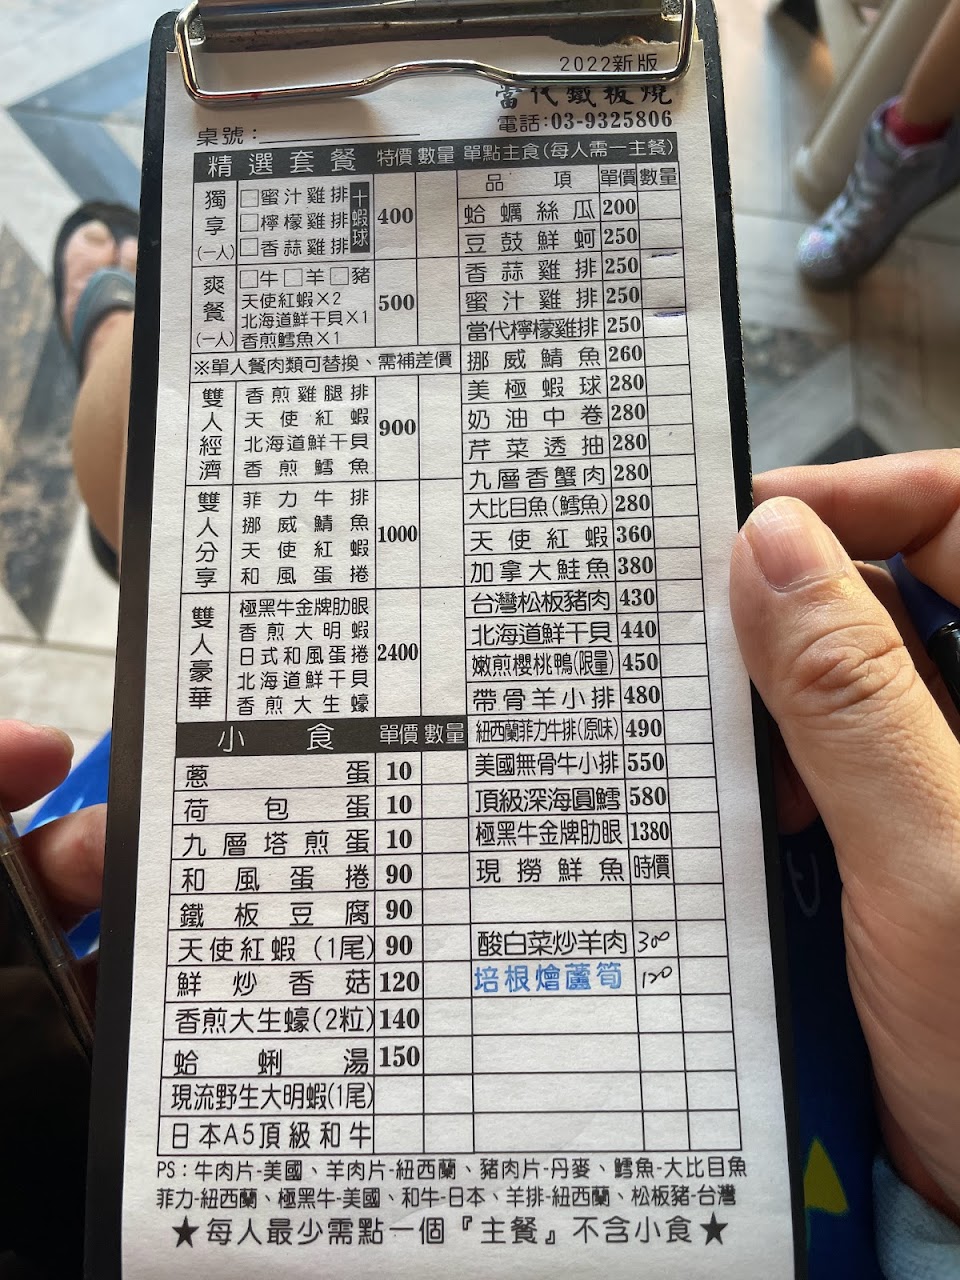 2022新版
當代鐵板燒
電話:03-9325806
桌號:
精選套餐 特價 數量
獨享(一人) □蜜汁雞排 □檸檬雞排 □香蒜雞排 十蝦球 400
爽餐(一人) □牛□羊□豬 天使紅蝦×2 北海道鮮干貝×1 香煎鱈魚×1 500
※單人餐肉類可替換、需補差價
雙人經濟 香煎雞腿排 天使紅蝦 北海道鮮干貝 香煎鱈魚 900
雙人分享 菲力牛排 挪威鯖魚 天使紅蝦 和風蛋捲 1000
雙人豪華 極黑牛金牌肋眼 香煎大明蝦 日式和風蛋捲 北海道鮮干貝 香煎大生蠔 2400
小食 單價 數量
蔥蛋 10
荷包蛋 10
九層塔煎蛋 10
和風蛋捲 90
鐵板豆腐 90
天使紅蝦(1尾) 90
鮮炒香菇 120
香煎大生蠔(2粒) 140
蛤蜊湯 150
現流野生大明蝦(1尾)
日本A5頂級和牛
單點主食(每人需一主餐)
品項 單價 數量
蛤蠣絲瓜 200
豆鼓鮮蚵 250
香蒜雞排 250
蜜汁雞排 250
當代檸檬雞排 250
挪威鯖魚 260
美極蝦球 280
奶油中卷 280
芹菜透抽 280
九層香蟹肉 280
大比目魚(鱈魚) 280
天使紅蝦 360
加拿大鮭魚 380
台灣松板豬肉 430
北海道鮮干貝 440
嫩煎櫻桃鴨(限量) 450
帶骨羊小排 480
紐西蘭菲力牛排(原味) 490
美國無骨牛小排 550
頂級深海圓鱈 580
極黑牛金牌肋眼 1380
現撈鮮魚 時價
酸白菜炒羊肉 300
培根燴蘆筍 120
PS:牛肉片-美國、羊肉片-紐西蘭、豬肉片-丹麥、鱈魚-大比目魚
菲力-紐西蘭、極黑牛-美國、和牛-日本、羊排-紐西蘭、松板豬-台灣
★每人最少需點一個『主餐』不含小食★